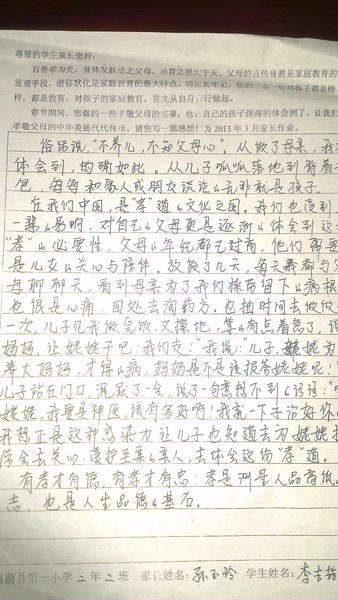 尊敬的学生家长您好：
百善孝为先，身体发肤受之父母，养育之恩大于天，父母的言传身教是家庭教育的
重要手段，潜移默化是家庭教育的最大特点，请家长牢记，您的一言一行对孩子都是榜
样，都是教育，对孩子的家庭教育，首先从自身言行做起。
春节期间，您做的一些孝敬父母的实事，也让自己的孩子深深的体会到了，让我们
孝敬父母的中华美德代代传承，请您写一篇感想作为2013年3月家长作业。
俗话说，"不养儿，不知父母心"，从做了母亲，我
体会到，的确如此。从儿子呱呱落地到背着
包，每每和家人或朋友谈论的话那都是孩子。
在我们中国，是"孝"道的文化之国。我们也受到
一辈的影响，对自己的父母更是逐渐的体会到这
"孝"的必要性，父母的年纪都已过高，他们需要
是儿女的关心与陪伴。放假了几天，每天我都与父
母聊聊天，看到母亲为了我们操劳留下的病根
也很是心痛，四处去淘药方。也抽时间去做做
一次，儿子见我做家饭又擦地，靠的有点着急了，说
妈妈，让姥姥干吧，我们走！"我说："儿子，姥姥为
养大妈妈，才得的病，妈妈是不是该报答姥姥呢！
儿子站在门口，沉默了一会，说了一句意想不到的话语："
姥姥，我要是神医该有多好啊！我就一下子治好你
我想正是这种感染力让儿子也知道去为姥姥
学会去关心、爱护至亲的亲人，去体会这份"孝"道。
有孝才有德，有孝才有忠，孝是测量人品高低
志，也是人生品德的基石。
荫县第一小学二年二班 家长姓名：孙玉玲 学生姓名：李吉喆